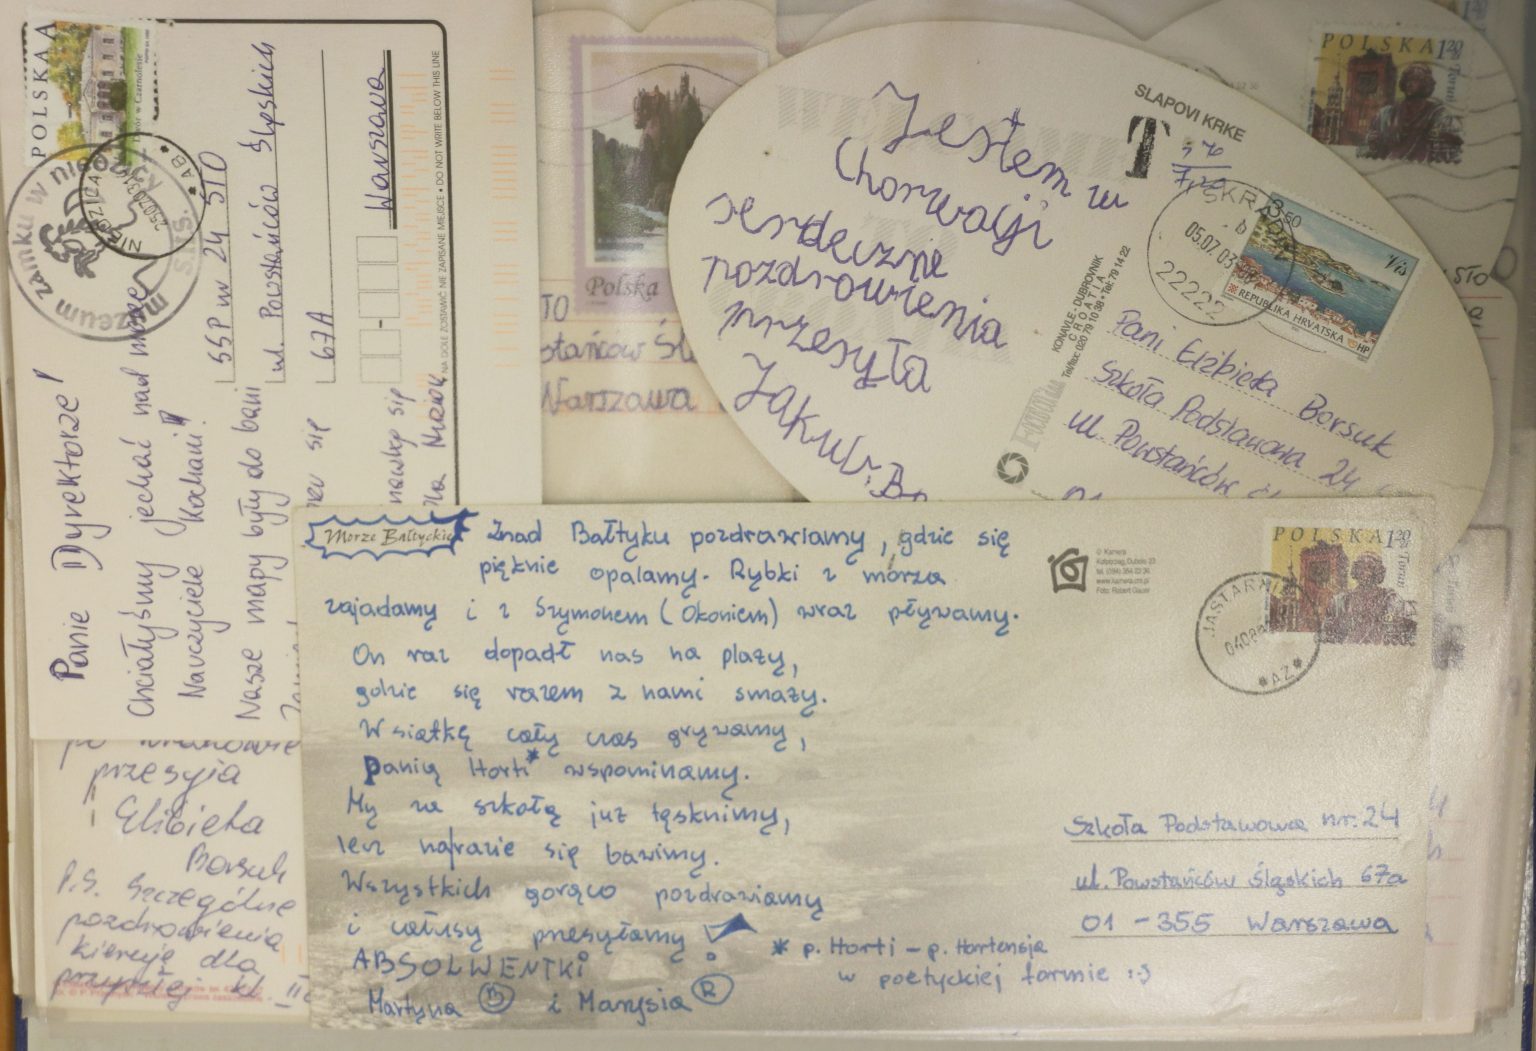 POLSKA A
Dwór w Czarnolesie
muzeum zamku w niedzicy
s.h.s.
NIEDZICA
AB
Panie Dyrektorze!
Chciałyśmy jechać nad morze
Nauczyciele Kochani!
Nasze mapy były do bani
SSP nr 24 STO
ul. Powstańców Śląskich
67A
Warszawa
NA DOLE ZOSTAWIĆ NIE ZAPISANE MIEJSCE • DO NOT WRITE BELOW THIS LINE
przesyła
Elżbieta
Borsuk
P.S. Szczególne
pozdrowienia
kieruję dla
przyszłej kl. II
Polska
STO
Warszawa
SLAPOVI KRKE
T
Jestem w
Chorwacji
serdeczne
pozdrowienia
przesyła
Jakub B
KONAVLE - DUBROVNIK
CROATIA
Tel/fax: 020 79 10 98 • Tel: 79 14 22
Forum
ŠKRADIN
b
05.07.03
22222
3,50
Vis
REPUBLIKA HRVATSKA
HP
Pani Elżbieta Borsuk
Szkoła Podstawowa 24
ul. Powstańców
POLSKA 1,20
Toruń
Morze Bałtyckie
Znad Bałtyku pozdrawiamy, gdzie się
pięknie opalamy. Rybki z morza
zajadamy i z Szymonem (Okoniem) wraz pływamy.
On raz dopadł nas na plaży,
gdzie się razem z nami smaży.
W siatkę cały czas grywamy,
Panią Horti* wspominamy.
My za szkołą już tęsknimy,
lecz narazie się bawimy.
Wszystkich gorąco pozdrawiamy
i całusy przesyłamy!
ABSOLWENTKI
Martyna B i Marysia R
* p. Horti – p. Hortensja
w poetyckiej formie :)
© Kamera
Kołobrzeg, Dubois 23
tel. (094) 354 22 36
www.kamera.com.pl
Foto: Robert Gauer
POLSKA 1,20
Toruń
JASTARNIA
AZ
Szkoła Podstawowa nr. 24
ul. Powstańców Śląskich 67a
01-355 Warszawa